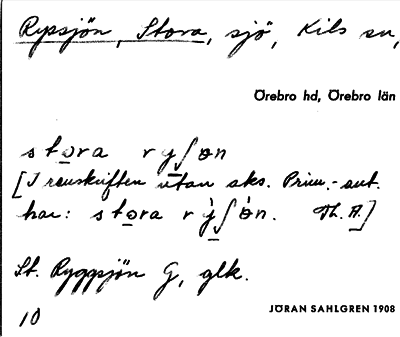 Ryssjön, Stora, sjö, Kils sn,
Örebro hd, Örebro län
stora ryʃɵn
[I renskriften utan aks. Prim.-ant.
har: stora rỳʃɵ̀n. Th. A.]
St. Ryggsjön G, glk.
10
JÖRAN SAHLGREN 1908